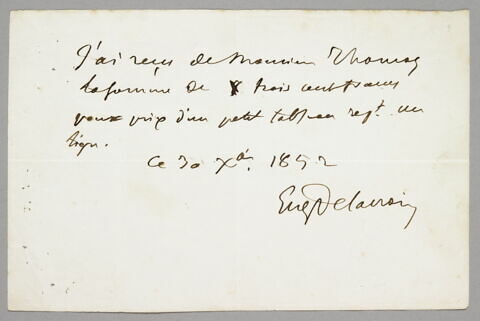 J'ai reçu de Monsieur Thomas
la somme de trois cents francs
pour prix d'un petit tableau rept. un
tigre.
Ce 30 Xbre 1852
Eug Delacroix